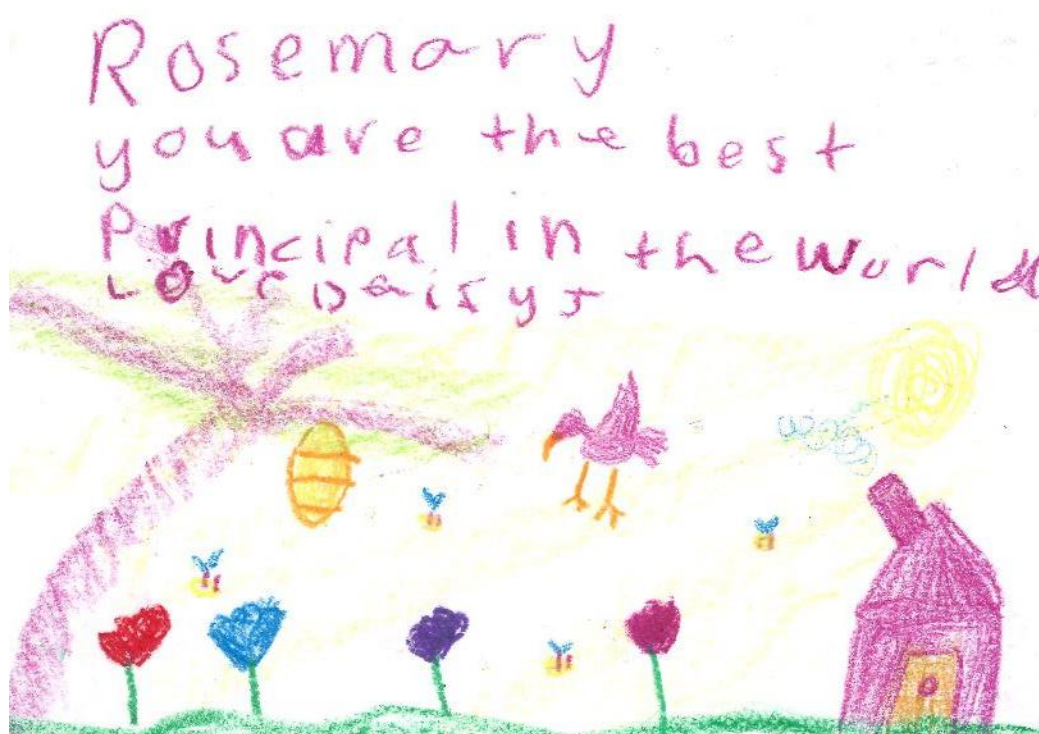 Rosemary
you are the best
Principal in the world
Love Daisy J